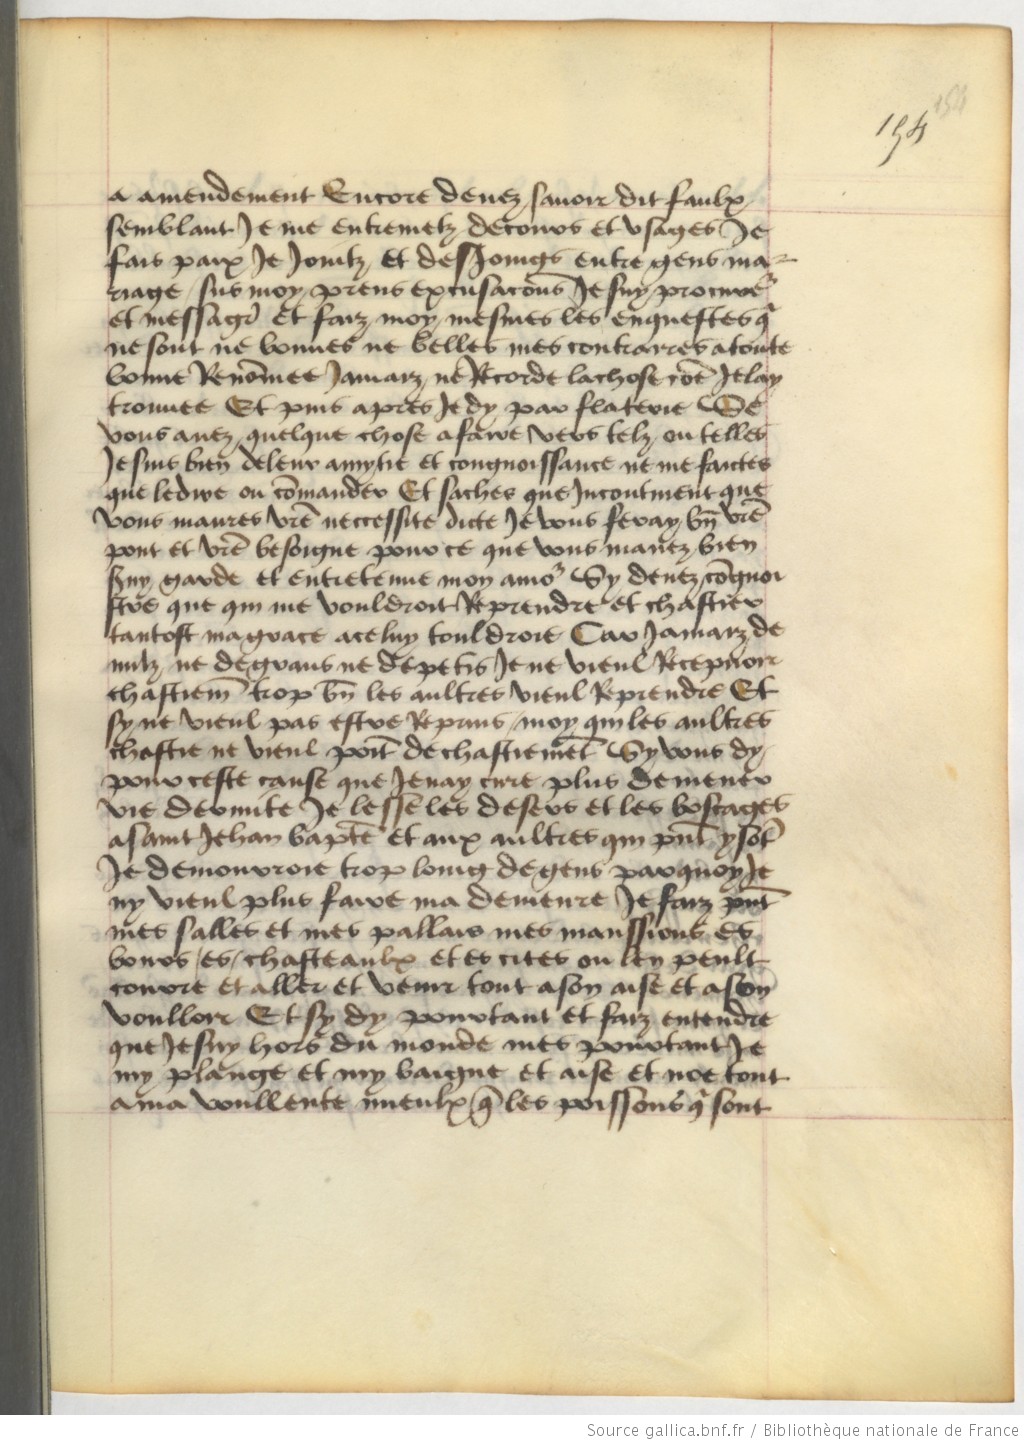 154
154
a amendement Encore devez savoir dit faulx
semblant Je me entremetz de cours et usages Je
fais paix Je Jointz et desJoings entre gens ma-
riage sus moy prens excusacōns Je suy procureʳ
et messagʳ et faiz moy mesmes les enquestes qͥ
ne sont ne bonnes ne belles mes contraires a toute
bonne Renōmee Jamaiz ne Recorde la chose cōe Je lay
trouvee Et puis apres Je dy par flaterie Se
vous avez quelque chose a faire vers telz ou telles
Je suis bien de leur amytie et congnoissance ne me faictes
que le dire ou cōmander Et saches que Incontinent que
vous maures vrē neccessite dicte Je vous feray bn̄ vrē
pont et vrē besoigne pour ce que vous mavez bien
suy garde et entretenu mon amoʳ Sy devez cōgnoi
stre que qui me vouldroit Reprendre et chastier
tantost ma grace a celuy touldroie Car Jamaiz de
nulz ne de grans ne de petis Je ne vieul Recepvoir
chastiem̄ trop bn̄ les aultres vieul Reprendre Et
sy ne vieul pas estre Reprins moy qui les aultres
chastie ne vieul poīt de chastiemēt Sy vous dy
pour ceste cause que Je nay cure plus de mener
vie dermite Je lesse les desers et les boscages
a saint Jehan baptē et aux aultres qui pn̄t y sōt
Je demourroie trop loing de gens par quoy Je
ny vieul plus faire ma demeure Je faiz pn̄t
mes salles et mes pallais mes manssions es
bours es chasteaulx et es cites ou len peult
courre et aller et venir tout a son aise et a son
voulloir Et sy dy pourtant et faiz entendre
que Je suy hors du monde mes pourtant Je
my plange et my baigne et aise et noe tout
a ma voullente mieulx q̄ les poissons qͥ sont
Source gallica.bnf.fr / Bibliothèque nationale de France